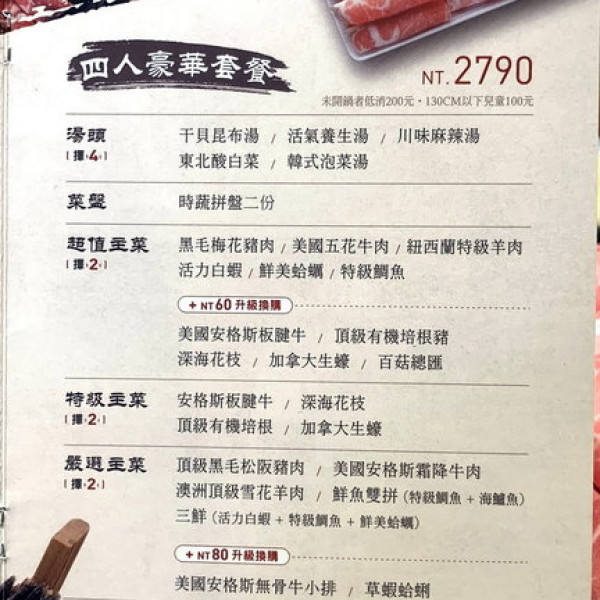 四人豪華套餐
NT. 2790
未開鍋者低消200元・130CM以下兒童100元
湯頭 干貝昆布湯 / 活氣養生湯 / 川味麻辣湯
[擇·4·] 東北酸白菜 / 韓式泡菜湯
菜盤 時蔬拼盤二份
超值主菜 黑毛梅花豬肉 / 美國五花牛肉 / 紐西蘭特級羊肉
[擇·2·] 活力白蝦 / 鮮美蛤蠣 / 特級鯛魚
+ NT60 升級換購
美國安格斯板腱牛 / 頂級有機培根豬
深海花枝 / 加拿大生蠔 / 百菇總匯
特級主菜 安格斯板腱牛 / 深海花枝
[擇·2·] 頂級有機培根 / 加拿大生蠔
嚴選主菜 頂級黑毛松阪豬肉 / 美國安格斯霜降牛肉
[擇·2·] 澳洲頂級雪花羊肉 / 鮮魚雙拼 (特級鯛魚 + 海鱸魚)
三鮮 (活力白蝦 + 特級鯛魚 + 鮮美蛤蠣)
+ NT80 升級換購
美國安格斯無骨牛小排 / 草蝦蛤蜊